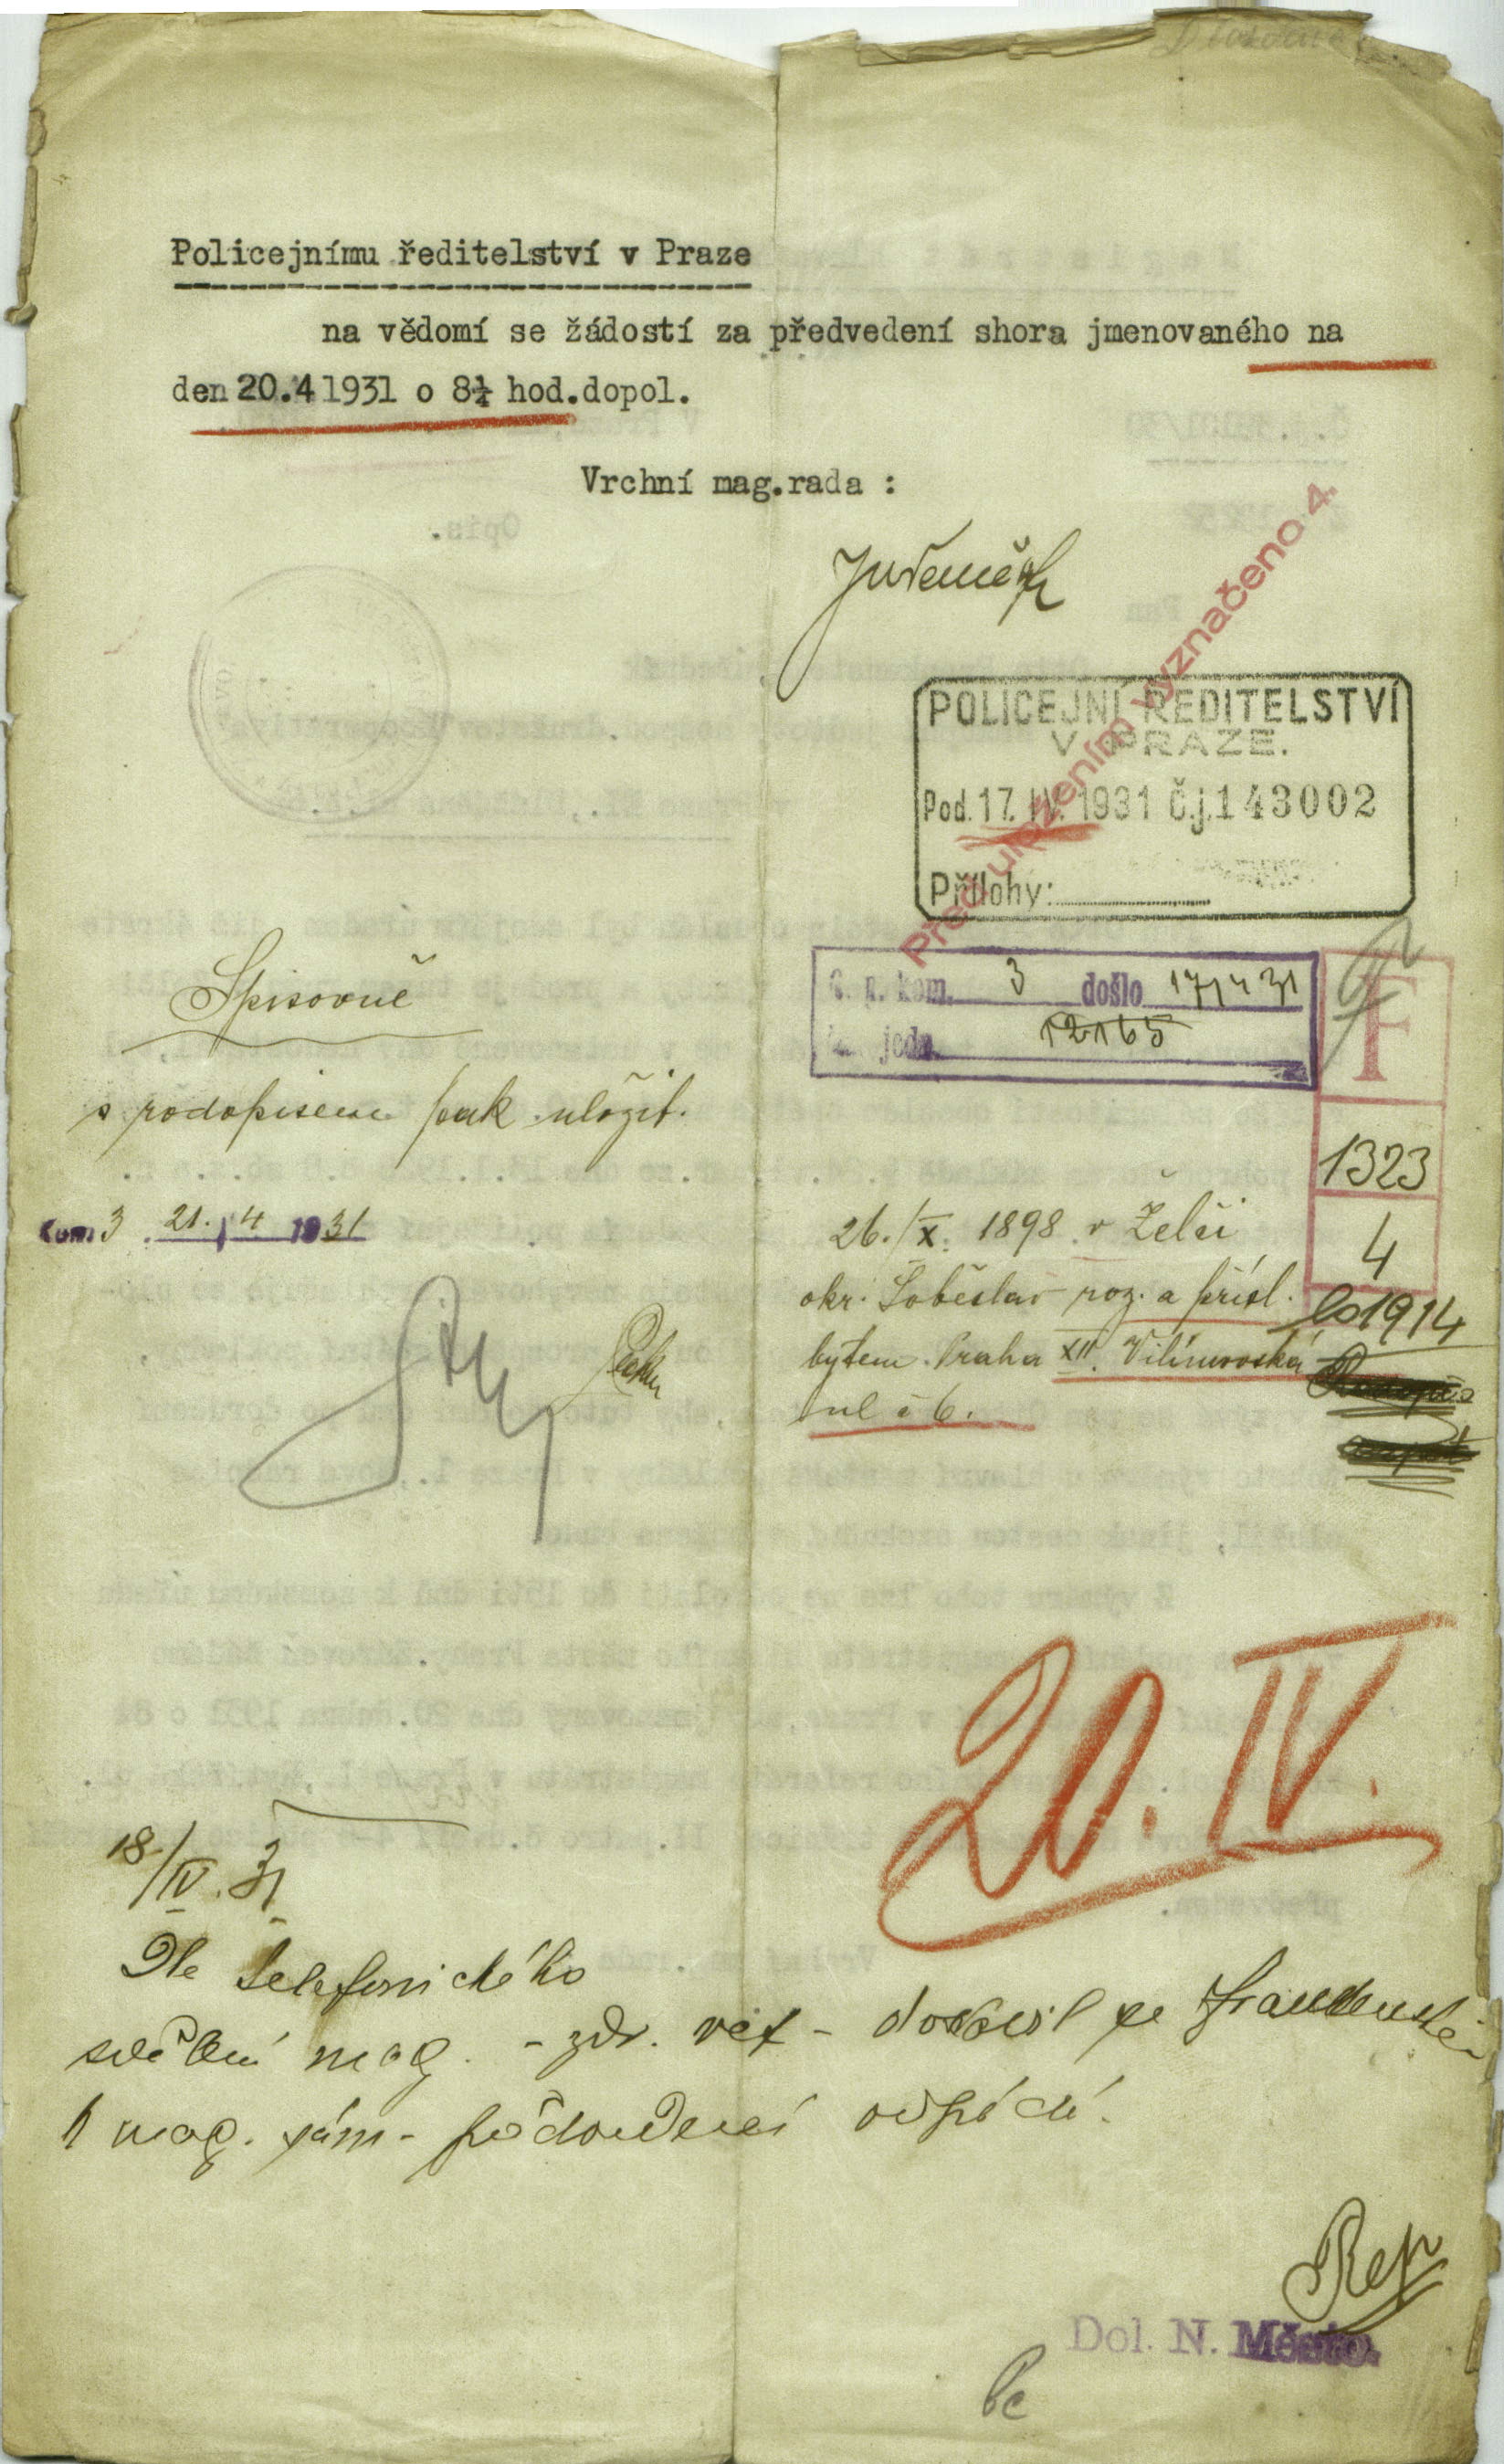 Policejnímu ředitelství v Praze
na vědomí se žádostí za předvedení shora jmenovaného na
den 20.4 1931 o 8¼ hod.dopol.
Vrchní mag.rada :
POLICEJNÍ ŘEDITELSTVÍ
V PRAZE.
Pod. 17. IV. 1931 Č.j. 143002
Přílohy:
Před uložením vyznačeno 4.
kom. 3 došlo 17/4 31
jedn. 12165
F
1323
4
1914
Spisovně
s rodopisem pak uložit.
Kom 3 21. 4 1931
26./X. 1898 v Želči
okr. Soběslav roz. a přísl.
bytem Praha XII. Vilímovská
ul č 6.
20. IV.
18/IV. 31
Dle telefonického
sdělení mag. - zdr. ref - dostavil se
k mag. sám - předvedení odpadá.
Dol. N. Město.